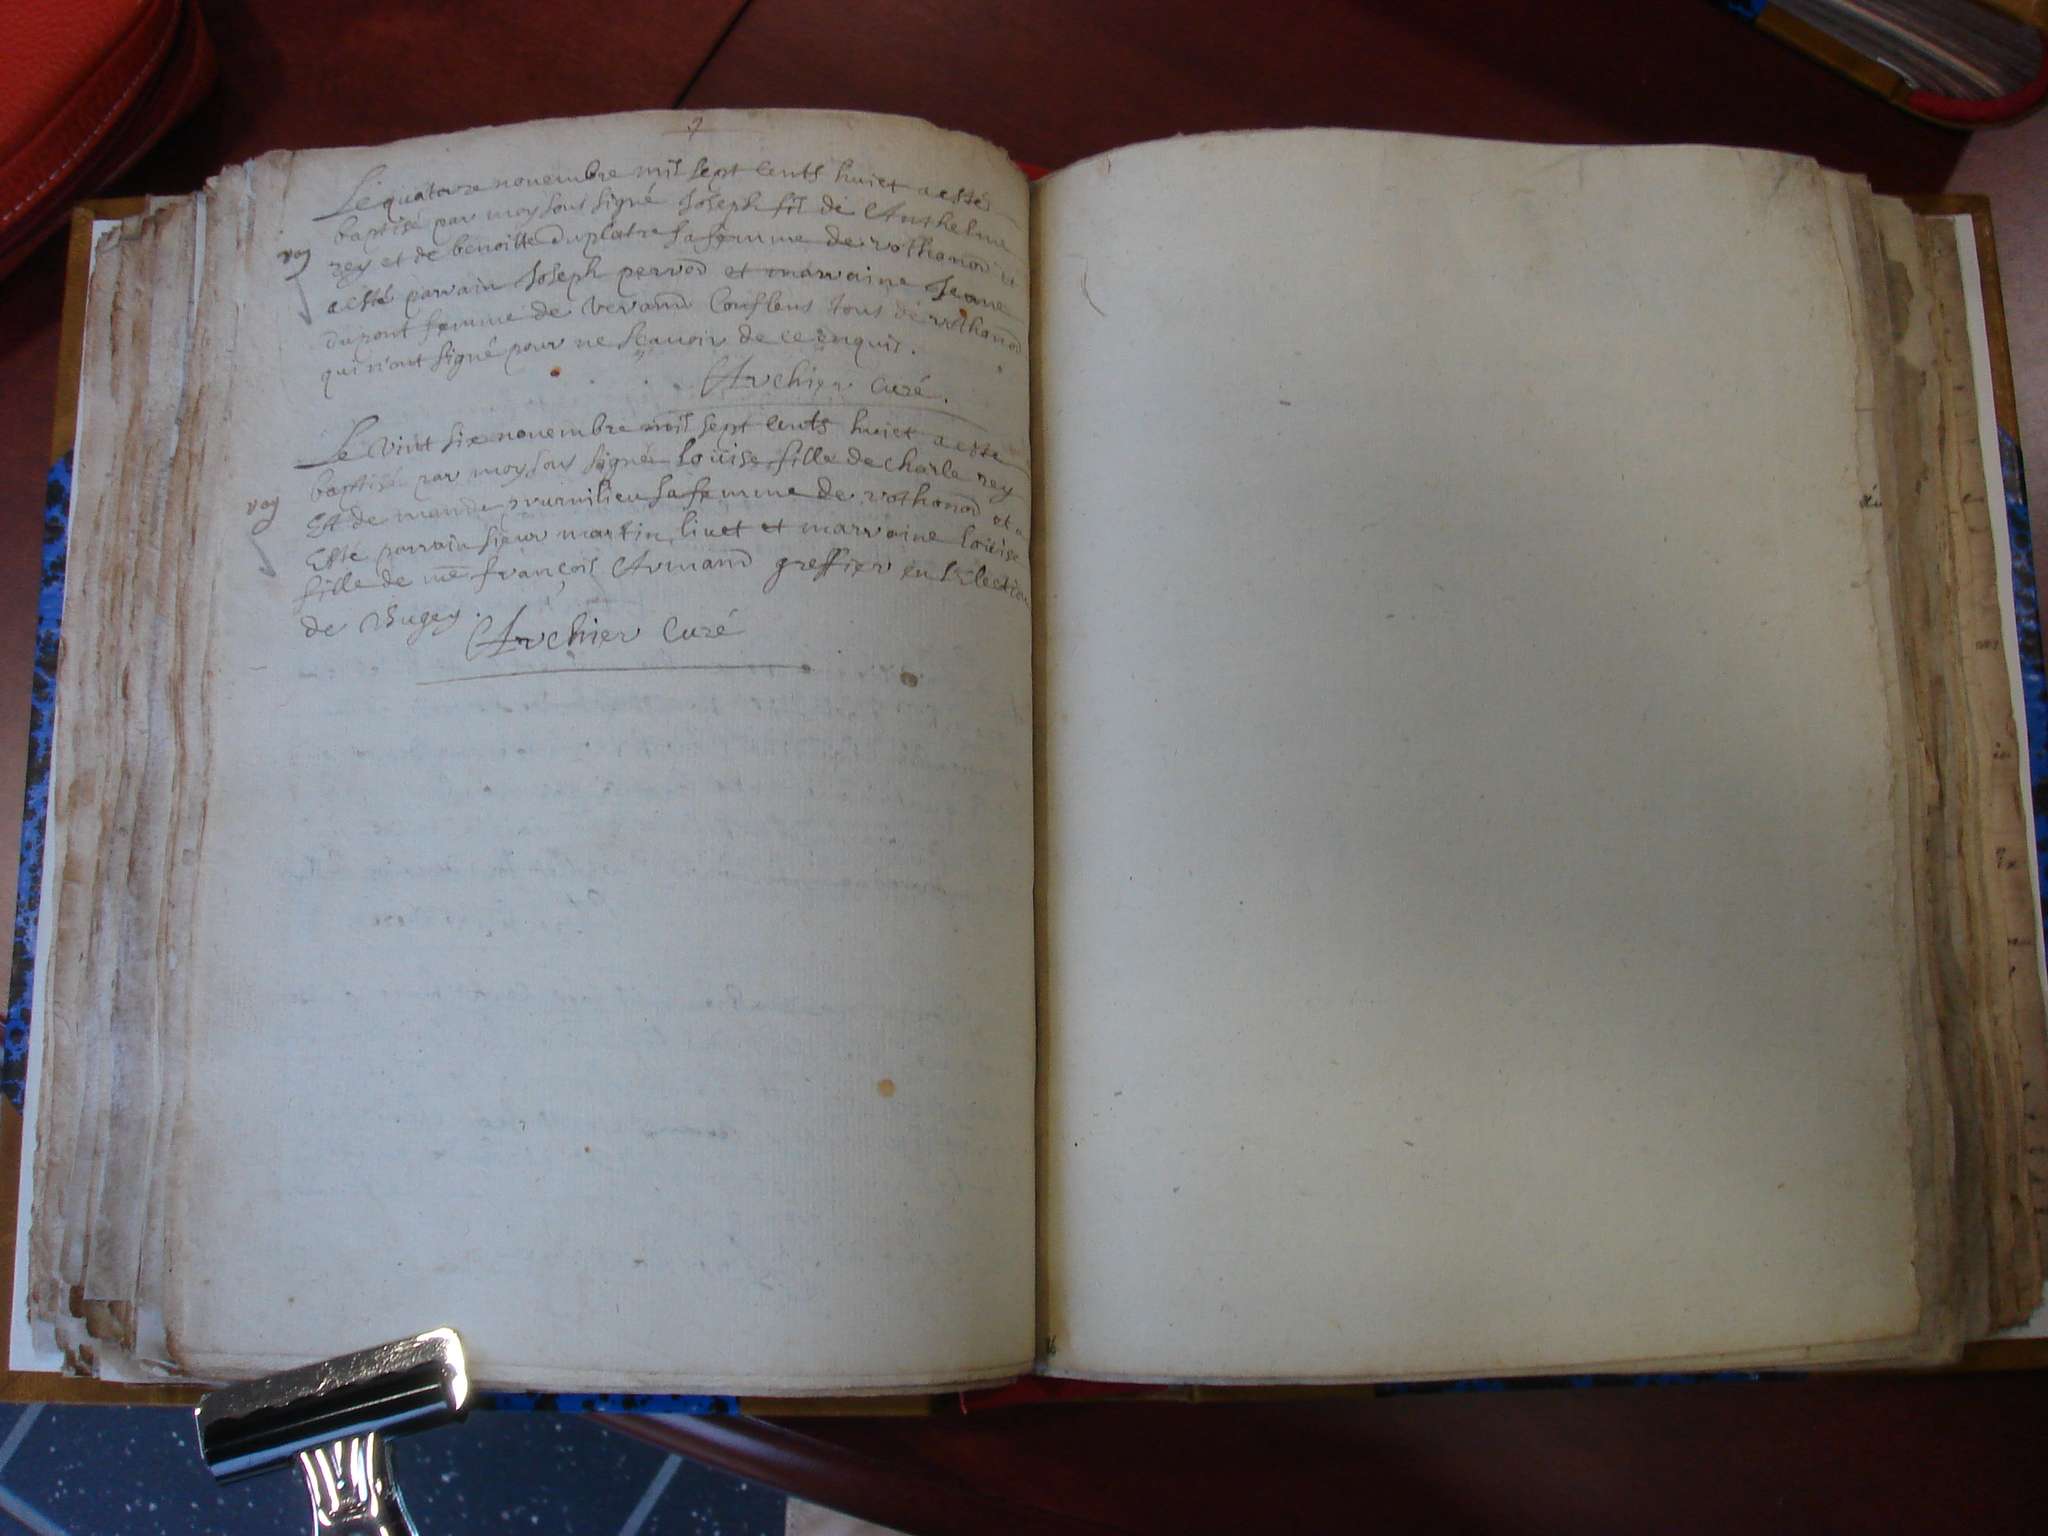 7
Le quatorze nouembre mil sept cents huict a esté
baptisé par moy sous signé Joseph fil de Anthelme
rey et de benoitte Duplatre sa femme de rothonod et
a esté parrain Joseph perrod et marraine Jeane
dupont femme de Verand Conflens tous de rothonod
qui n'ont signé pour ne sçauoir de ce enquis.
Archier Curé.
rey
Le Vint six nouembre mil sept cents huict a esté
baptisé par moy sous signé loüise fille de charle rey
Et de prumilieu sa femme de rothonod et a
Esté parrain sieur martin liuet et marraine loüise
fille de me françois Armand greffier en l'Election
de Bugey.
Archier Curé
rey